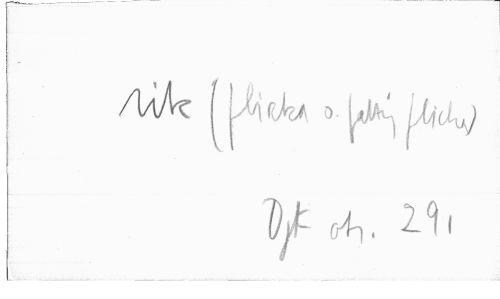 rik (flicka o. fattig flicka)
Djk oh. 291